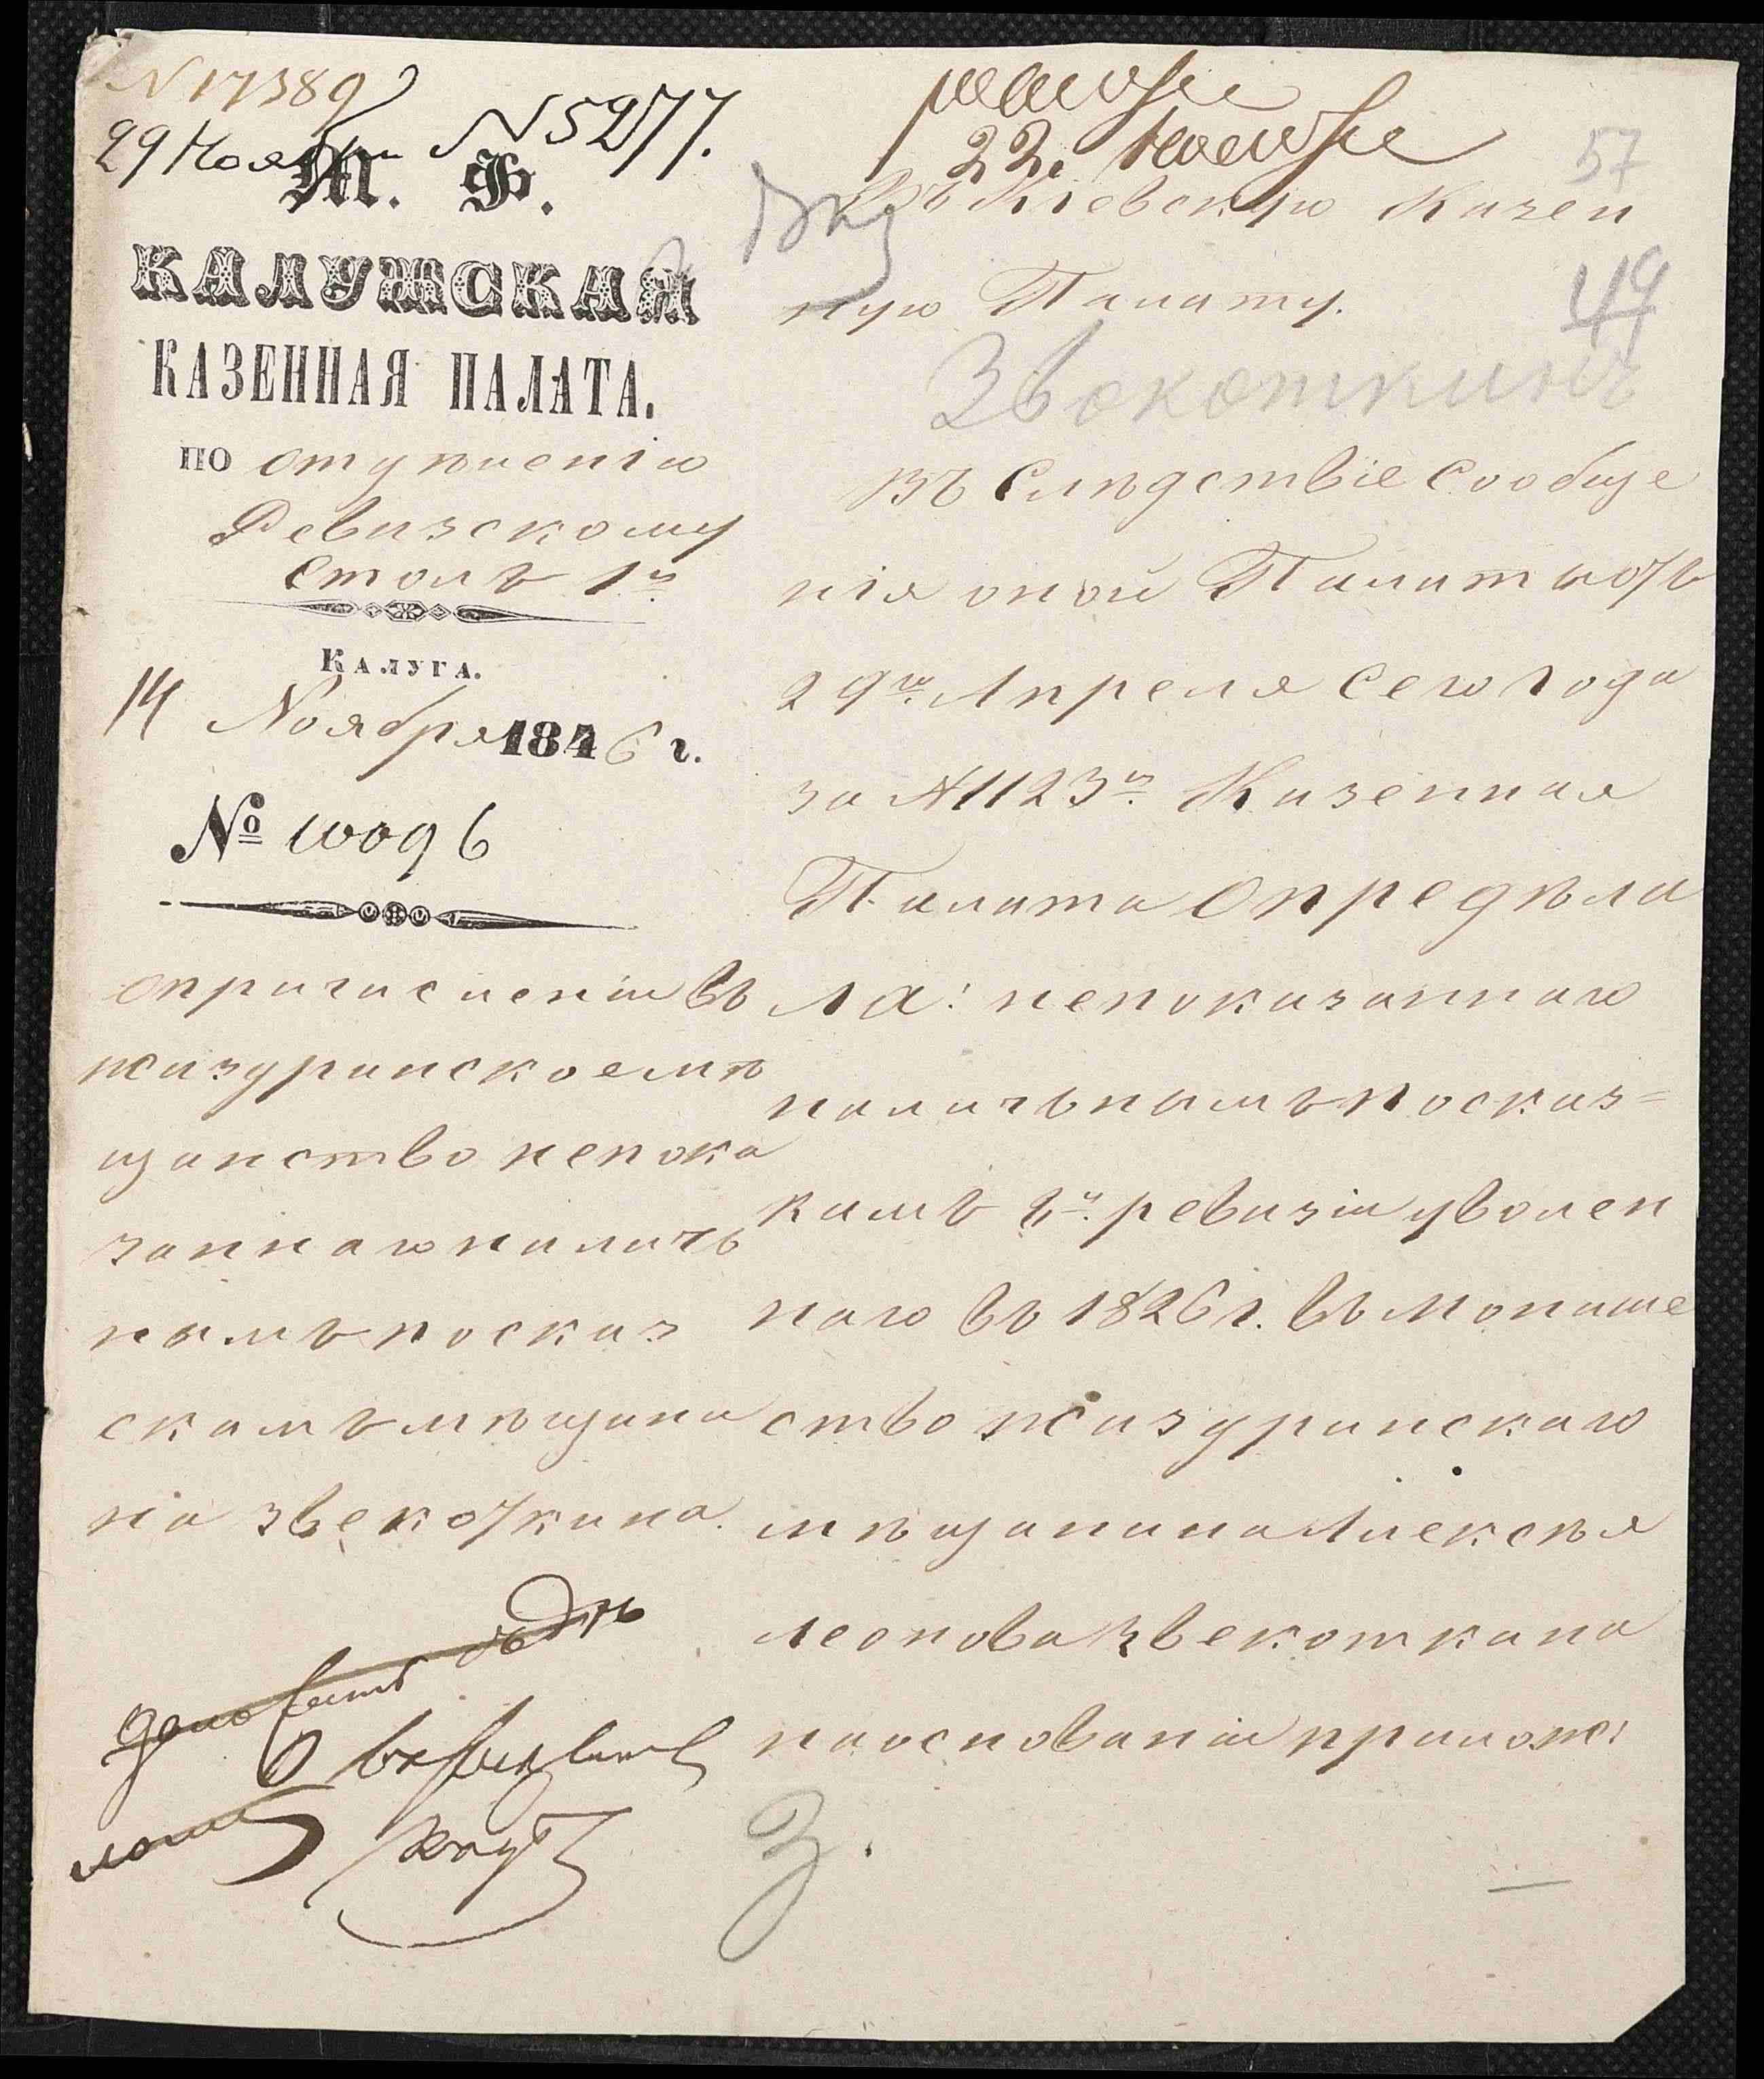 N 17389
29 Ноября N 5277.
22.
57
М. Ф.
КАЛУЖСКАЯ
КАЗЕННАЯ ПАЛАТА.
ПО отделенію
Ревизскому
Столъ 1й
КАЛУГА.
14 Ноября 1846 г.
№ 10096
опричисленіи въ
жиздринскоемѣ
щанство непока
заннаго наличь
нымъ посказ
скамъ мѣщани
на Звекоткина.
Въ Кіевскую Казен
ную Палату.
49
Звокоткинъ
Въ Слѣдствіе Сообще
нія оной Палаты отъ
29го Апреля Сего года
за N 1123м Казенная
Палата Опредѣли
ла: непоказаннаго
наличьнымъ посказ=
камъ 8й ревизіи уволен
наго въ 1826 г. въ Монаше
ство жиздринскаго
мѣщанина Алексѣя
Леонова Звекоткина
наоснованіи прилож:
З.